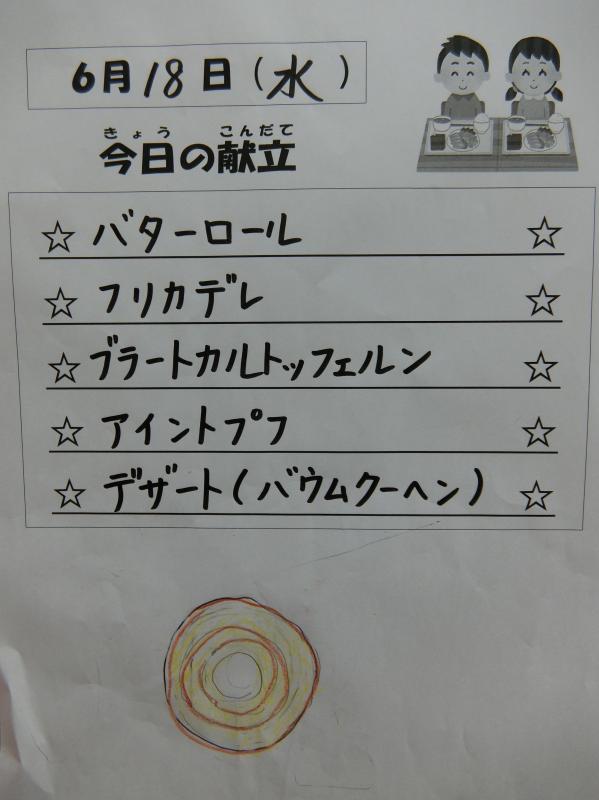 6月18日(水)
きょう こんだて
今日の献立
☆ バターロール ☆
☆ フリカデレ ☆
☆ ブラートカルトッフェルン ☆
☆ アイントプフ ☆
☆ デザート(バウムクーヘン) ☆